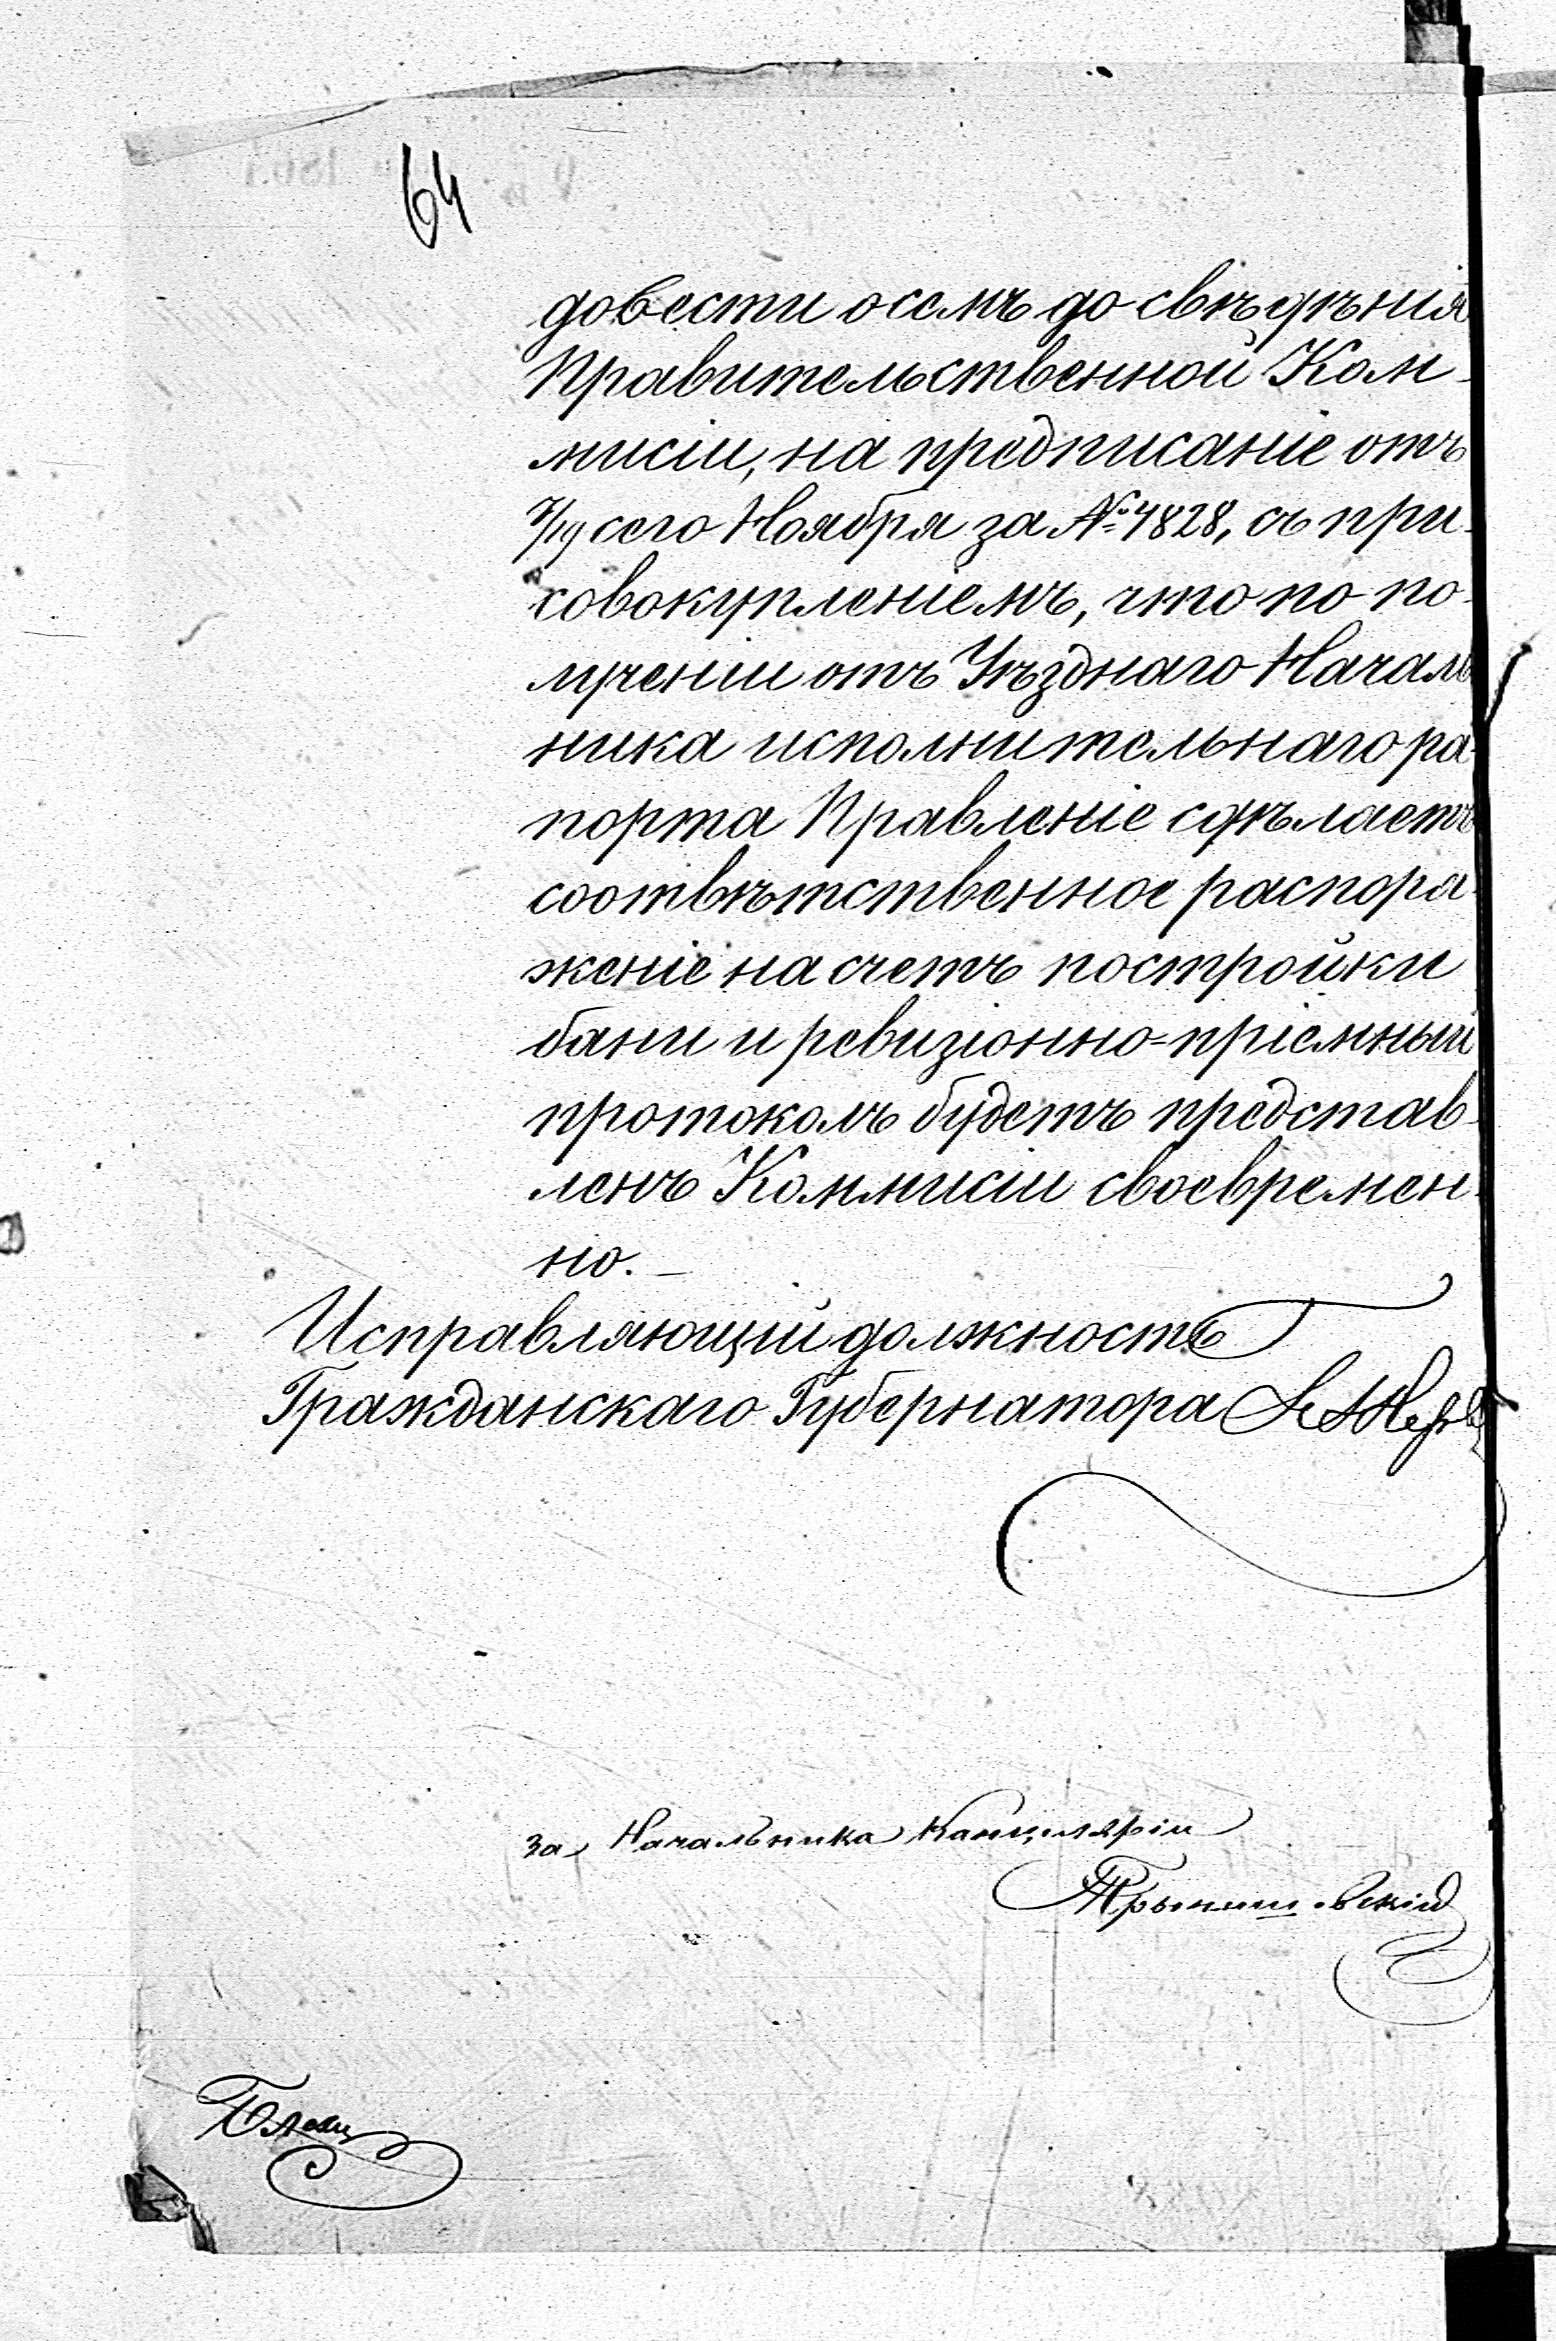 64
довести о семъ до свѣдѣнія
Правительственной Ком-
мисіи, на предписаніе отъ
7/19 сего Ноября за № 4828, съ при-
совокупленіемъ, что по по-
лученіи отъ Уѣзднаго Началь
ника исполнительнаго ра-
порта Правленіе сдѣлаетъ
соотвѣтственное распоря-
женіе на счетъ постройки
бани и ревизіонно-пріемный
протоколъ будетъ представ-
ленъ Коммисіи своевремен-
но.
Исправляющій должность
Гражданскаго Губернатора
за Начальника Канцеляріи